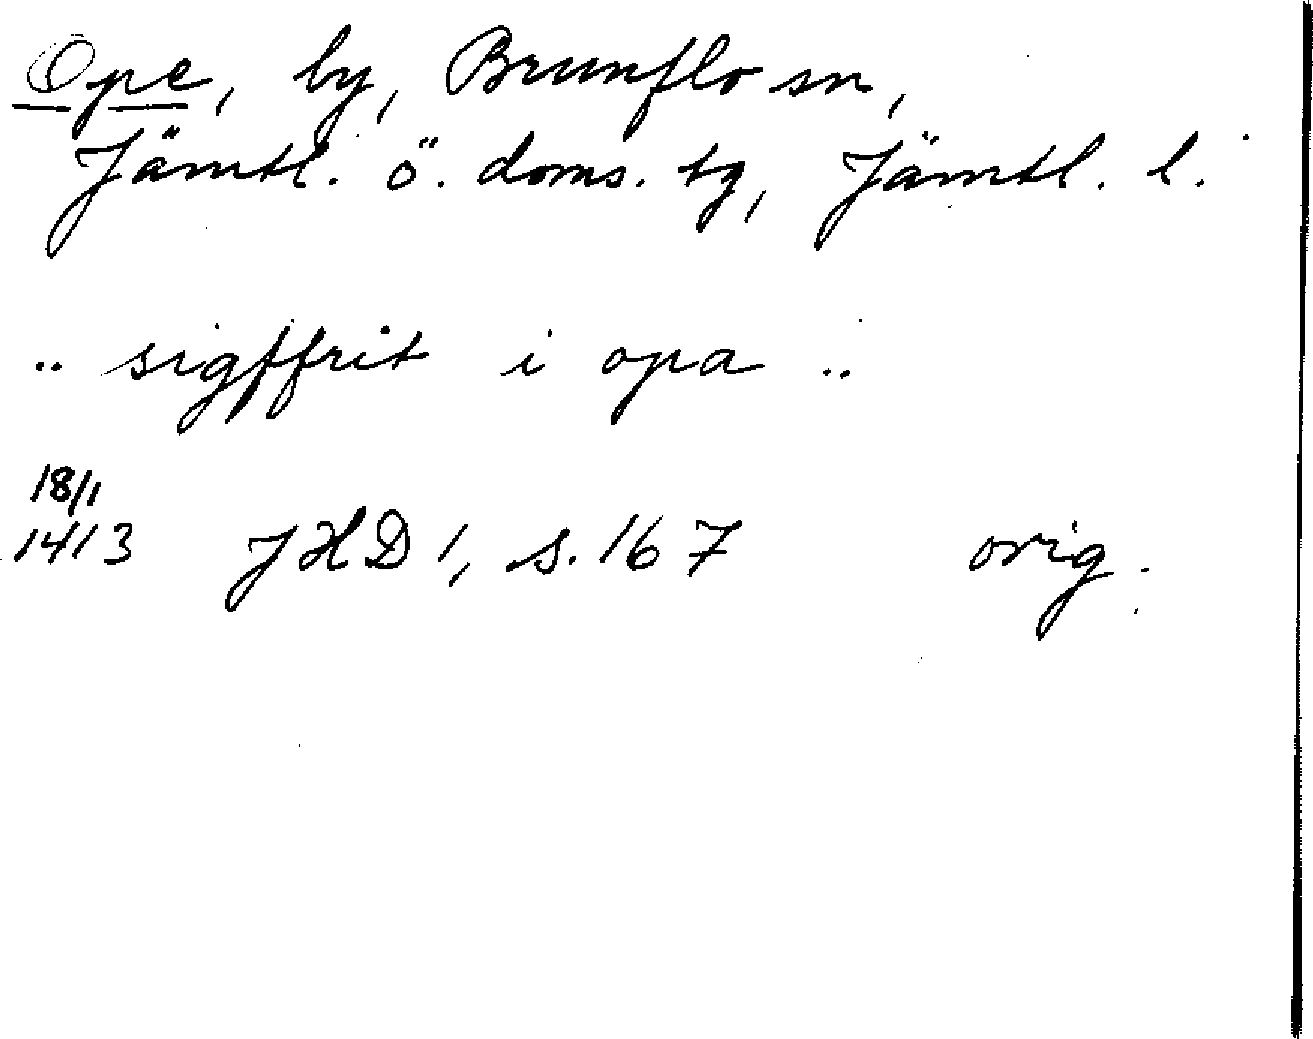 Ope, by, Brunflo sn,
Jämtl. ö. doms. tg, Jämtl. l.
.. sigffrit i opa ..
18/1
1413 JHD 1, s. 167 orig.